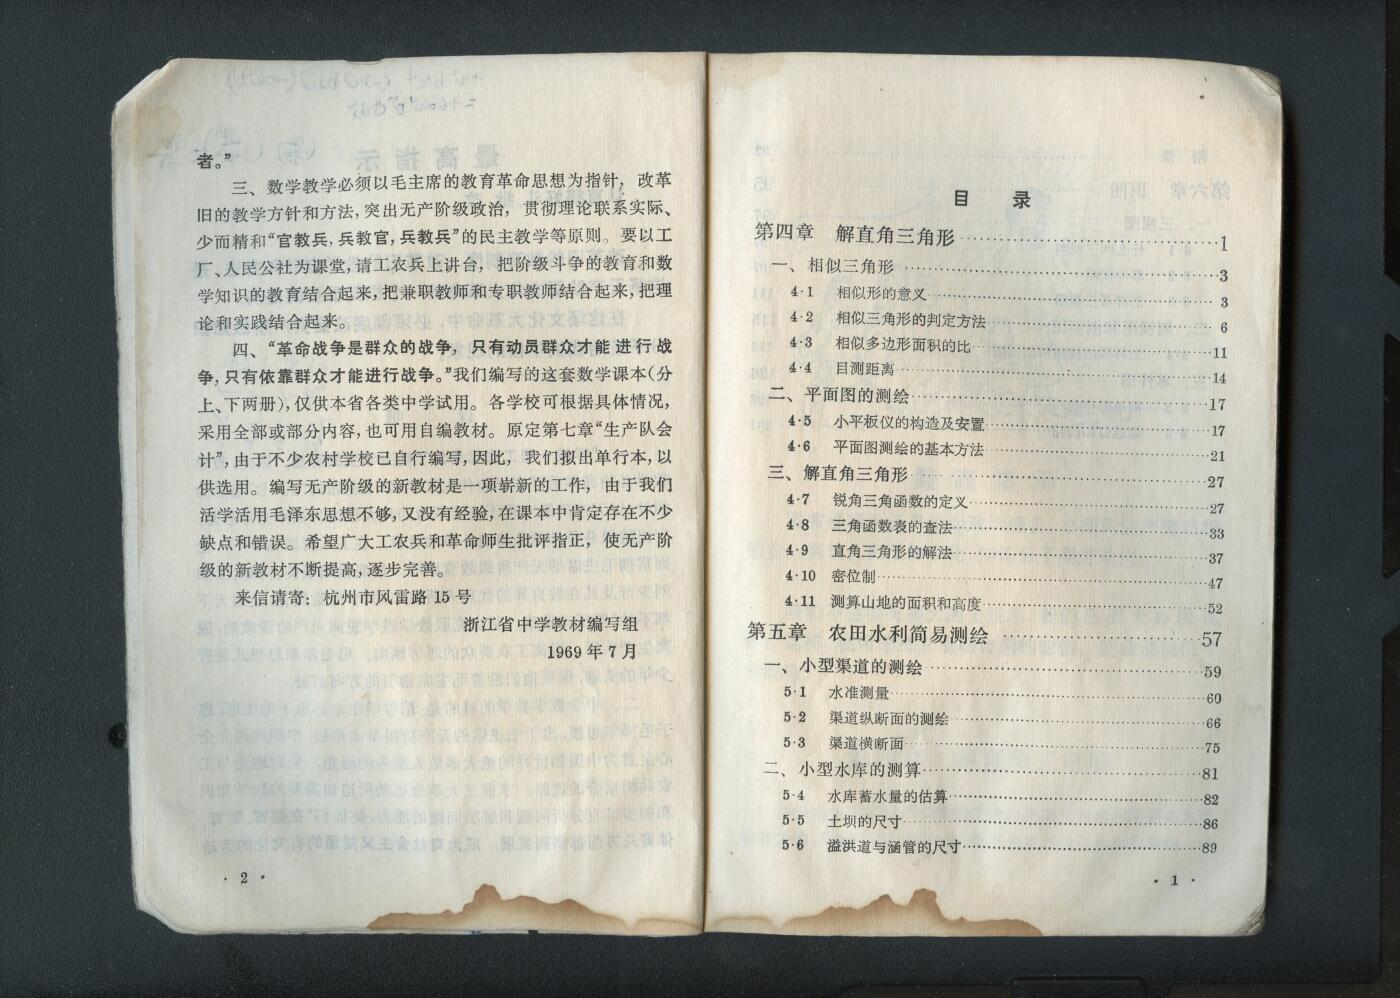 者。”
三、数学教学必须以毛主席的教育革命思想为指针，改革
旧的教学方针和方法，突出无产阶级政治，贯彻理论联系实际、
少而精和“官教兵，兵教官，兵教兵”的民主教学等原则。要以工
厂、人民公社为课堂，请工农兵上讲台，把阶级斗争的教育和数
学知识的教育结合起来，把兼职教师和专职教师结合起来，把理
论和实践结合起来。
四、“革命战争是群众的战争，只有动员群众才能进行战
争，只有依靠群众才能进行战争。”我们编写的这套数学课本（分
上、下两册），仅供本省各类中学试用。各学校可根据具体情况，
采用全部或部分内容，也可用自编教材。原定第七章“生产队会
计”，由于不少农村学校已自行编写，因此，我们拟出单行本，以
供选用。编写无产阶级的新教材是一项崭新的工作，由于我们
活学活用毛泽东思想不够，又没有经验，在课本中肯定存在不少
缺点和错误。希望广大工农兵和革命师生批评指正，使无产阶
级的新教材不断提高，逐步完善。
来信请寄：杭州市风雷路 15 号
浙江省中学教材编写组
1969 年 7 月
· 2 ·
目 录
第四章 解直角三角形……1
一、相似三角形……3
4·1 相似形的意义……3
4·2 相似三角形的判定方法……6
4·3 相似多边形面积的比……11
4·4 目测距离……14
二、平面图的测绘……17
4·5 小平板仪的构造及安置……17
4·6 平面图测绘的基本方法……21
三、解直角三角形……27
4·7 锐角三角函数的定义……27
4·8 三角函数表的查法……33
4·9 直角三角形的解法……37
4·10 密位制……47
4·11 测算山地的面积和高度……52
第五章 农田水利简易测绘……57
一、小型渠道的测绘……59
5·1 水准测量……60
5·2 渠道纵断面的测绘……66
5·3 渠道横断面……75
二、小型水库的测算……81
5·4 水库蓄水量的估算……82
5·5 土坝的尺寸……86
5·6 溢洪道与涵管的尺寸……89
· 1 ·